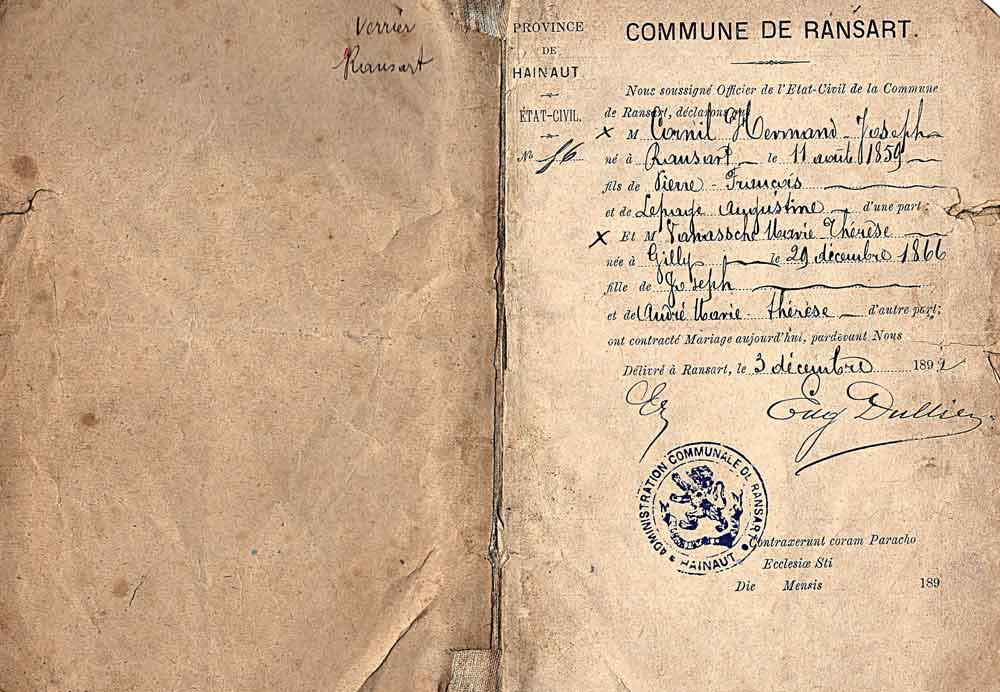 Verrier
Ransart
PROVINCE
DE
HAINAUT
ÉTAT-CIVIL.
No 56
COMMUNE DE RANSART.
Nous soussigné Officier de l'Etat-Civil de la Commune
de Ransart, déclarons que
x M Cornil Hermand-Joseph
né à Ransart le 11 août 1859
fils de Pierre-François
et de Lepage Augustine d'une part;
x Et M Vanassche Marie Thérèse
née à Gilly le 29 décembre 1866
fille de Joseph
et de André Marie-Thérèse d'autre part;
ont contracté Mariage aujourd'hui, pardevant Nous
Délivré à Ransart, le 3 décembre 1892
Eug Dullier
ADMINISTRATION COMMUNALE DE RANSART
HAINAUT
Contraxerunt coram Parocho
Ecclesiæ Sti
Die Mensis 189